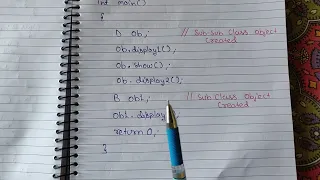 int main()
{
D ob; // Sub Sub Class Object Created
ob.display1();
ob.show();
ob.display2();
B ob1; // Sub Class Object Created
ob1.display
return 0;
}